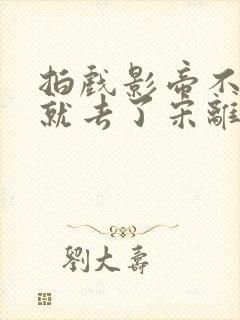 拍戲影帝不
就去了宋離
劉大壽